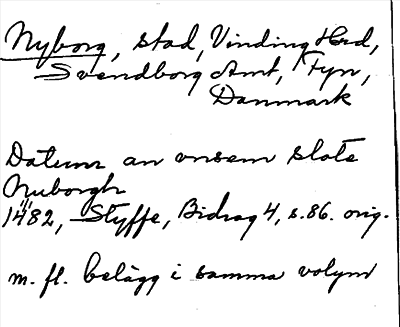 Nyborg, stad, Vinding Hrd,
Svendborg Amt, Fyn,
Danmark
Datum an vnsem slote
Nuborgh
1482, Styffe, Bidrag 4, s. 86. orig.
m. fl. belägg i samma volym